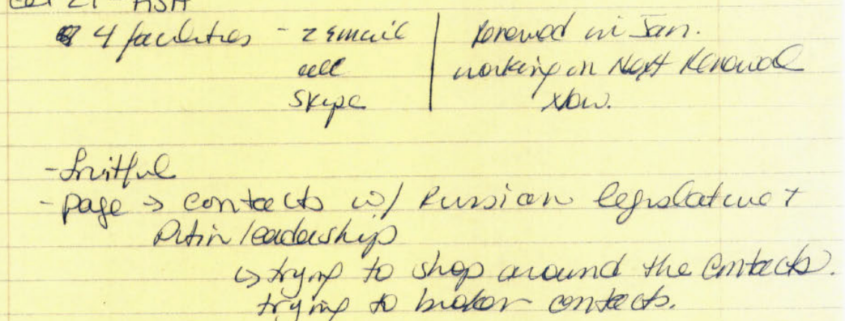 4 facilities - 2 email | Renewed in Jan.
cell | working on Next Renewal
Skype | Now.
- fruitful
- page → contacts w/ Russian legislature +
Putin leadership
↳ trying to shop around the contacts.
trying to broker contacts.